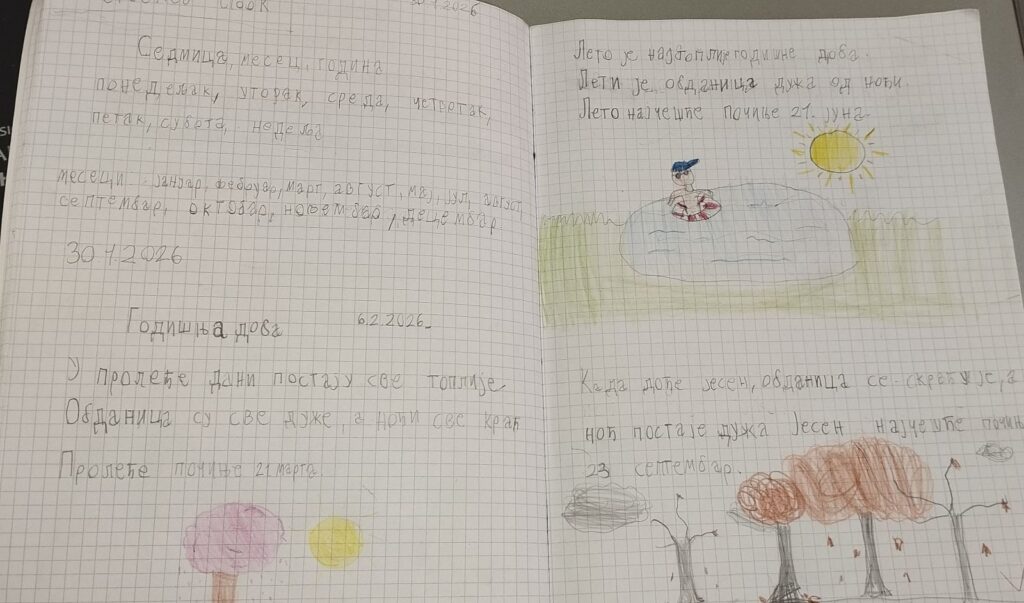 30.1.2026
Седмица, месец, година
понедељак, уторак, среда, четвртак,
петак, субота, недеља
месеци: јануар, фебруар, март, август, мај, јул, август,
септембар, октобар, новембар, децембар.
30.1.2026
Годишња доба 6.2.2026.
У пролеће дани постају све топлије
Обданица су све дуже, а ноћи све краћ
Пролеће почиње 21 марта.
Лето је најтоплије годишње доба.
Лети је обданица дужа од ноћи.
Лето најчешће почиње 21. јуна.
Када дође јесен, обданица се скраћује, а
ноћ постаје дужа Јесен најчешће почињ
23 септембар.